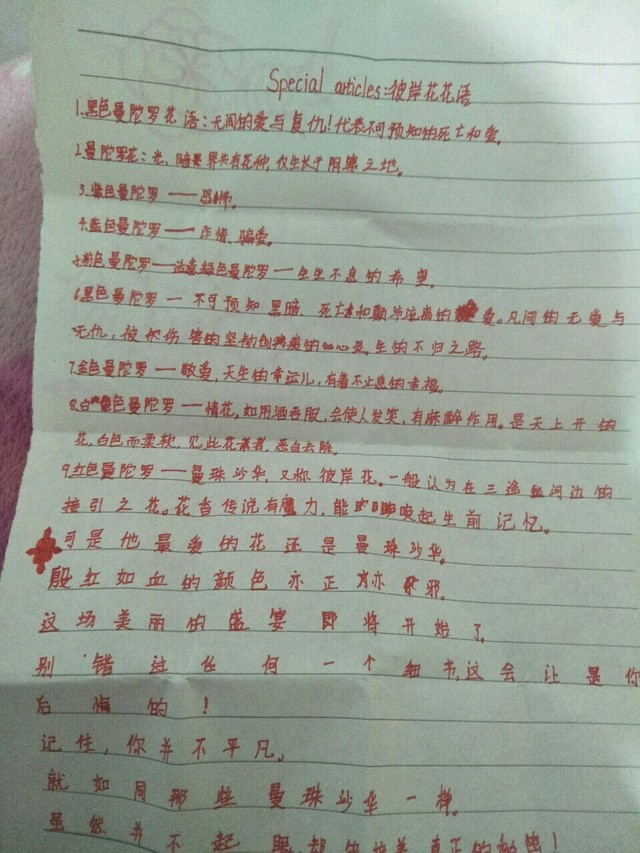 Special articles:彼岸花花语
1.黑色曼陀罗花语:无间的爱与复仇!代表不可预知的死亡和爱。
2.曼陀罗花:光、暗黑界共有花种,仅生长于阴寒之地。
3.绿色曼陀罗——恐怖。
4.蓝色曼陀罗——诈情、骗爱。
5.粉色曼陀罗—绿色曼陀罗—生生不息的希望。
6.黑色曼陀罗—不可预知黑暗、死亡和颠沛流离的爱。凡间的无爱与
无仇,被伤害的坚韧创痍的心灵,生的不归之路。
7.金色曼陀罗——敬爱,天生的幸运儿,有着不止息的幸福。
8.白色曼陀罗——情花,如用酒吞服,会使人发笑,有麻醉作用。是天上开的
花,白色而柔软,见此花者,恶自去除。
9.红色曼陀罗——曼珠沙华,又称彼岸花。一般认为在三途河边的
接引之花。花香传说有魔力,能唤起生前记忆。
可是他最爱的花还是曼珠沙华。
殷红如血的颜色亦正亦邪。
这场美丽的盛宴即将开始了
别错过任何一个细节,这会让是你
后悔的!
记住,你并不平凡。
就如同那些曼珠沙华一样。
虽然并不起眼,却